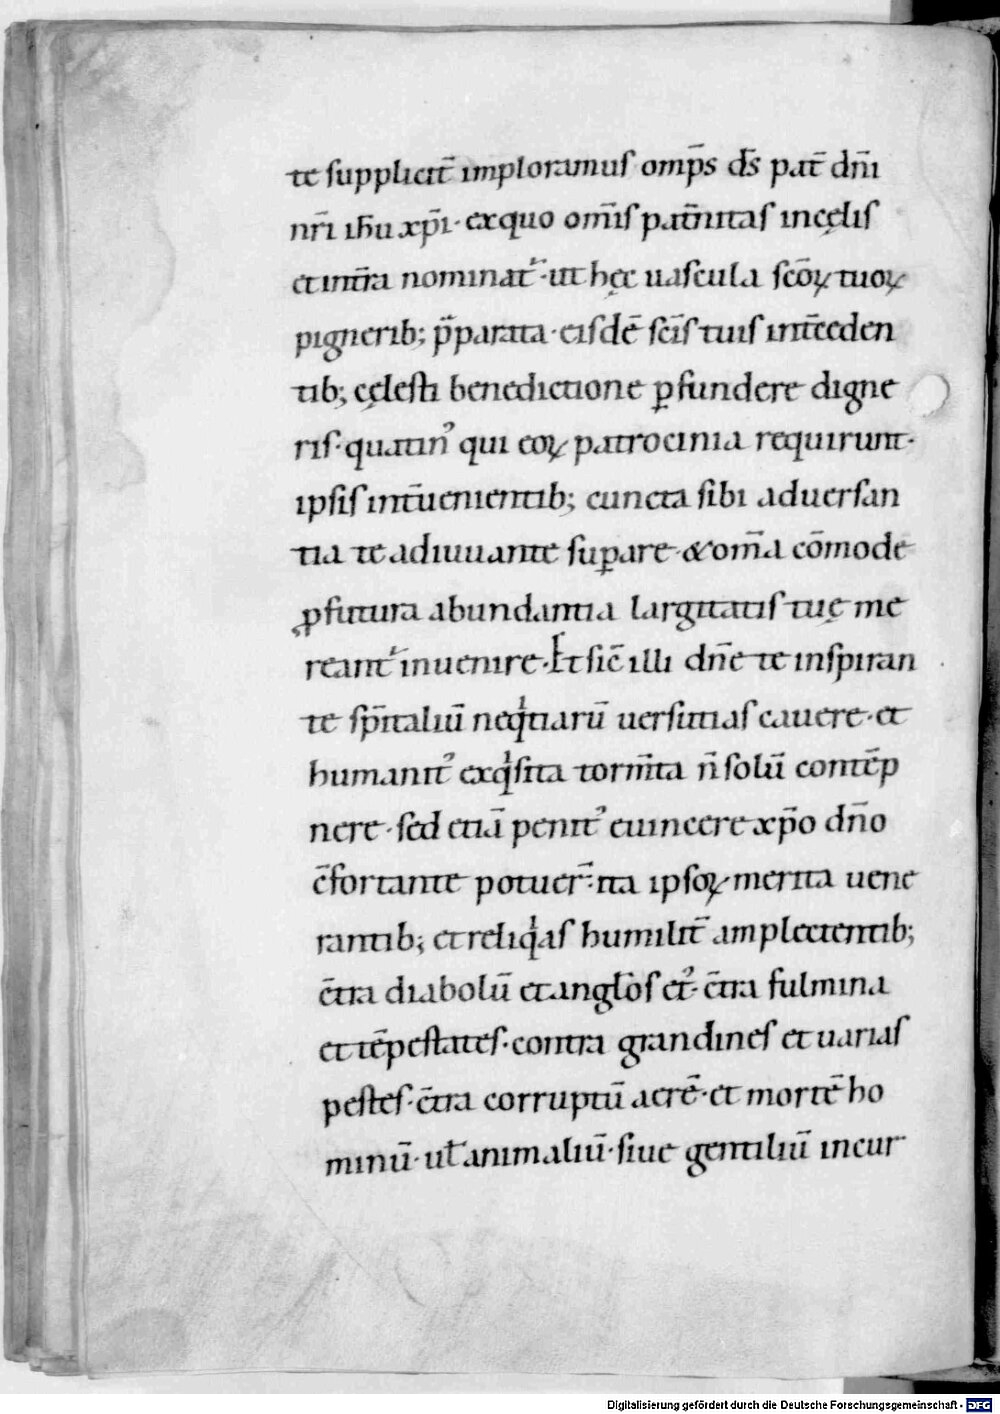 te suppliciт̄ imploramus omp̄s d̄s pat̄ dn̄i
nr̄i ih̄u xp̄i· exquo om̄is pat̄nitas incęlis
et int̄ra nominat᷑·ut hęc uascula sc̄oꝝ tuoꝝ
pignerib; p̄parata·eisdē sc̄is tuis int̄ceden
tib; cęlesti benedictione ꝑfundere digne
ris·quatin᾽ qui eoꝝ patrocinia requirunt·
ipsis int̄uenientib; cuncta sibi aduersan
tia te adiuuante suꝑare·&om̄a cōmode
ꝓfutura abundantia largitatis tuę me
reant᷑ inuenire·Et sic̄ illi dn̄e te inspiran
te sp̄italiū neqͥtiarū uersutias cauere·et
humanit᾽ exqͥsita torm̄ta n̄ solū contēp
nere·sed etiā penit᾽ euincere xp̄o dn̄o
c̄fortante potuer̄·ita ipsoꝝ merita uene
rantib; et reliqͥas humilit̄ amplectentib;
c̄tra diabolū et anglos ei᾽·c̄tra fulmina
et tēpestates·contra grandines et uarias
pestes·c̄tra corruptū aerē·et mortē ho
minū·ul̄ animaliū·siue gentiliū incur
Digitalisierung gefördert durch die Deutsche Forschungsgemeinschaft - DFG